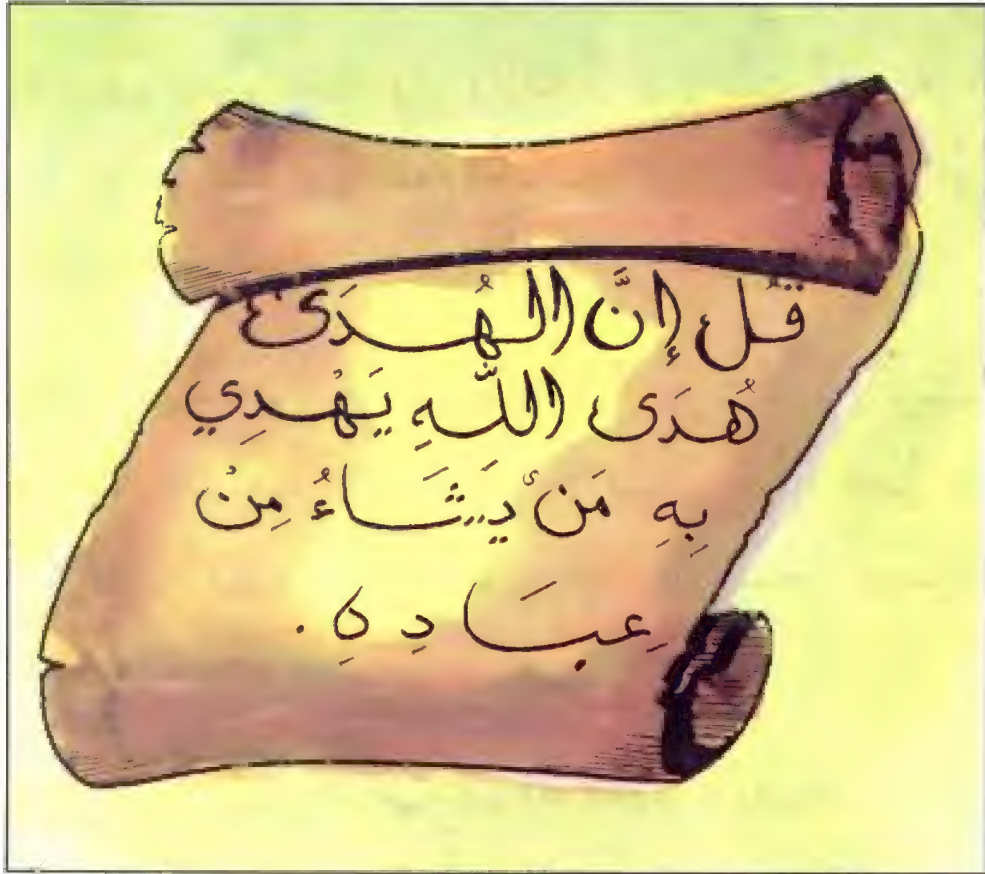 قُل إِنَّ الْهُدَى
هُدَى اللَّهِ يَهْدِي
بِهِ مَنْ يَشَاءُ مِنْ
عِبَادِهِ.